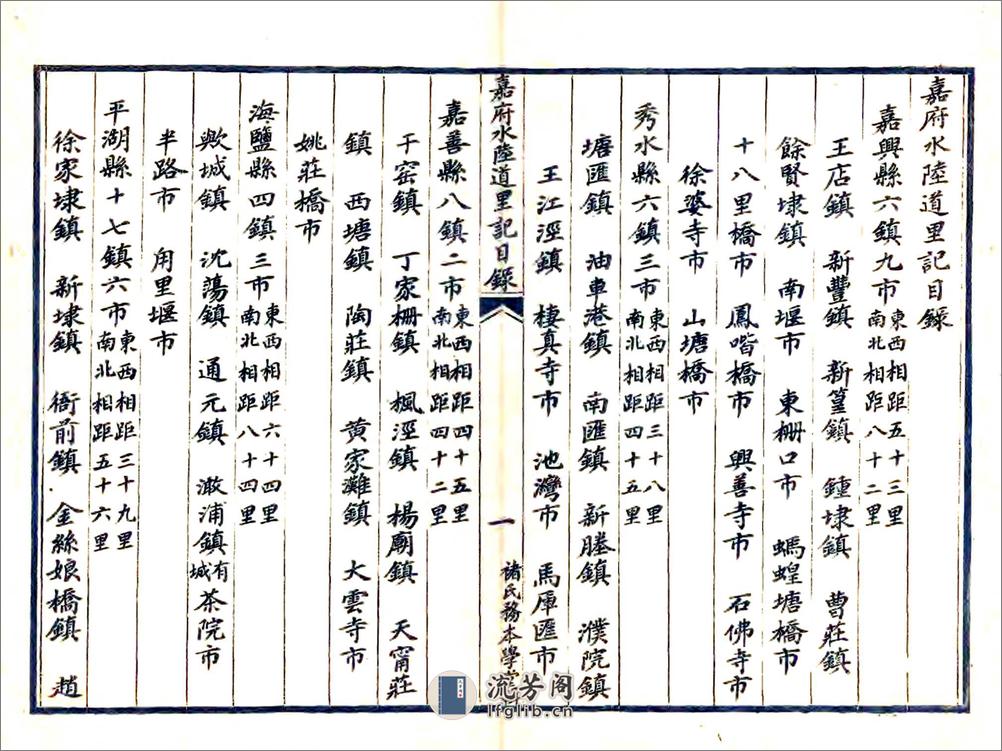 嘉府水陸道里記目錄
嘉興縣六鎮九市東西相距五十三里南北相距八十二里
王店鎮 新豐鎮 新篁鎮 鍾埭鎮 曹莊鎮
餘賢埭鎮 南堰市 東柵口市 螞蝗塘橋市
十八里橋市 鳳喈橋市 興善寺市 石佛寺市
徐婆寺市 山塘橋市
秀水縣六鎮三市東西相距三十八里南北相距四十五里
塘匯鎮 油車港鎮 南匯鎮 新塍鎮 濮院鎮
王江涇鎮 棲真寺市 池灣市 馬厙匯市
嘉府水陸道里記目錄 一 褚氏務本學堂
嘉善縣八鎮二市東西相距四十五里南北相距四十二里
干窑鎮 丁家柵鎮 楓涇鎮 楊廟鎮 天甯莊
鎮 西塘鎮 陶莊鎮 黄家灘鎮 大雲寺市
姚莊橋市
海鹽縣四鎮三市東西相距六十四里南北相距八十四里
歟城鎮 沈蕩鎮 通元鎮 澉浦鎮有城 茶院市
半路市 甪里堰市
平湖縣十七鎮六市東西相距三十九里南北相距五十六里
徐家埭鎮 新埭鎮 衙前鎮 金絲娘橋鎮 趙
流芳阁
lfglib.cn